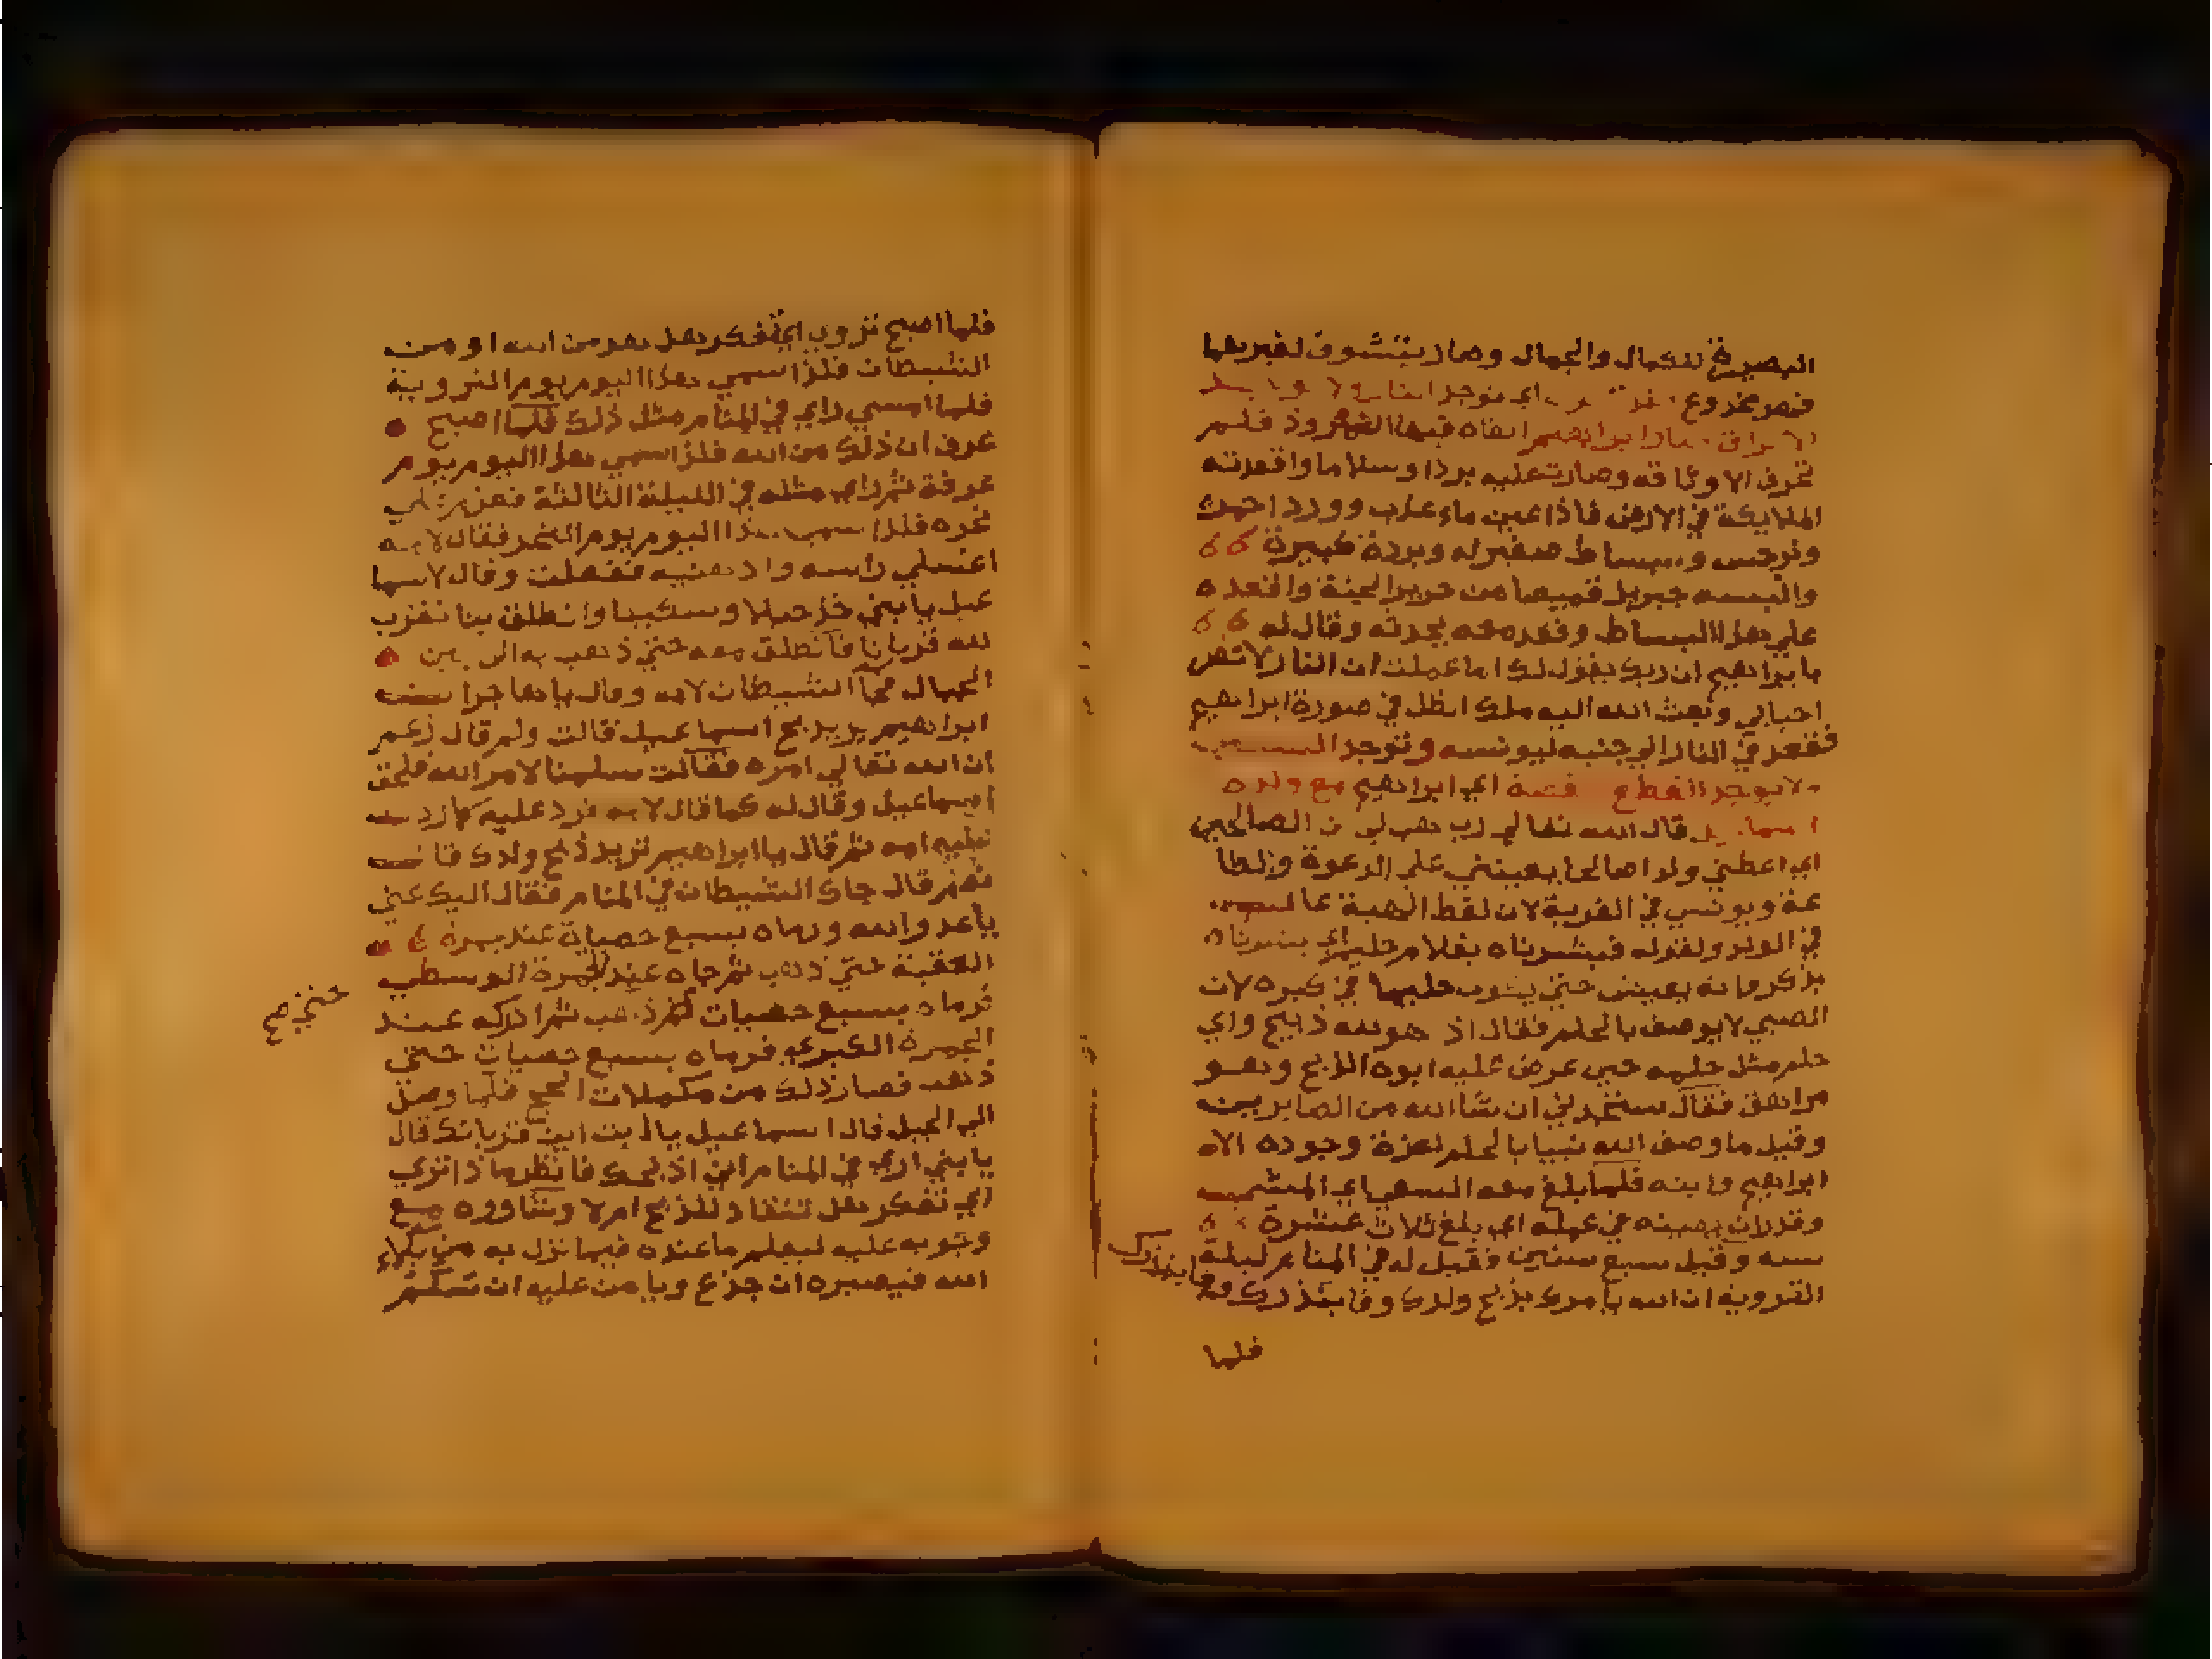 البصيرة للكمال والجمال وصار يتشوف لغيرهما
فهو مخدوع اي توجد النار ولا يوجد
الاحراق نار ابراهيم القاه فيها النمروذ فلم
تحرق الا وثاقه وصارت عليه بردا وسلاما واقعدته
الملايكة في الارض فاذا عين ماء عذب وورد احمر
ونرجس وبساط صغير له وبردة كبيرة
والبسه جبريل قميصا من حرير الجنة واقعده
علي هذا البساط وقعد معه يحدثه وقال له
يابراهيم ان ربك يقول لك اما علمت ان النار لا تضر
احبابي وبعث الله اليه ملك الظل في صورة ابراهيم
فقعد في النار الي جنبه ليونسه وتوجد السكين
ولا يوجد القطع قصة اي ابراهيم مع ولده
اسماعيل قال الله تعالي رب هب لي من الصالحين
اي اعطني ولدا صالحا يعينني علي الدعوة والطا
عة ويونسي في الغربة لان لفظ الهبة غالب
في الولد ولقوله فبشرناه بغلام حليم اي بشرناه
بذكر وانه يعيش حتي يكون حليما في كبره لان
الصبي لا يوصف بالحلم فقال اذ هو لله ذبيح واي
حلم مثل حلمه حين عرض عليه ابوه الذبح وهو
مراهق فقال ستجدني ان شا الله من الصابرين
وقيل ما وصف الله نبيا بالحلم لعزة وجوده الا
ابراهيم وابنه فلما بلغ معه السعي اي المشي
وقدر ان يعينه في عمله اي بلغ ثلاث عشرة
سنه وقيل سبع سنين فقيل له في المنام ليلة
التروية ان الله يامرك بذبح ولدك وفا بنذرك
فلما
فلما اصبح تروي اي تفكر هل هو من الله او من
الشيطان فلذا سمي هذا اليوم يوم التروية
فلما امسي راي في المنام مثل ذلك فلما اصبح
عرف ان ذلك من الله فلذا سمي هذا اليوم يوم
عرفة ثم راي مثله في الليلة الثالثة فعزم علي
نحره فلذا سمي هذا اليوم يوم النحر فقال لامه
اغسلي راسه وادهنيه ففعلت وقال لاسما
عيل يا بني خذ حبلا وسكينا وانطلق بنا نقرب
لله قربانا فانطلق معه حتي ذهب به الي بين
الجبال فجا الشيطان لامه وقال يا هاجر
ابراهيم يريد ذبح اسماعيل قالت ولم قال زعم
ان الله تعالي امره فقالت سلمنا لامر الله فلحق
اسماعيل وقال له كما قال لامه فرد عليه كما ردت
عليه امه ثم قال يا ابراهيم تريد ذبح ولدك قال
نعم قال جاك الشيطان في المنام فقال اليك عني
يا عدو الله ورماه بسبع حصياة عند جمرة
العقبة حتي ذهب ثم جاه عند الجمرة الوسطي
فرماه بسبع حصيات ثم ذهب ثم ادركه عند
حتي صح
الجمرة الكبري فرماه بسبع حصيات حتي
ذهب فصار ذلك من مكملات الحج فلما وصل
الي الجبل قال اسماعيل يا ابت اين قربانك قال
يا بني اري في المنام اني اذبحك فانظر ماذا تري
اي تفكر هل تنقاد للذبح ام لا وشاوره مع
وجوبه عليه ليعلم ما عنده فيما نزل به من بلاء
الله فيصبره ان جزع ويامن عليه ان سلم